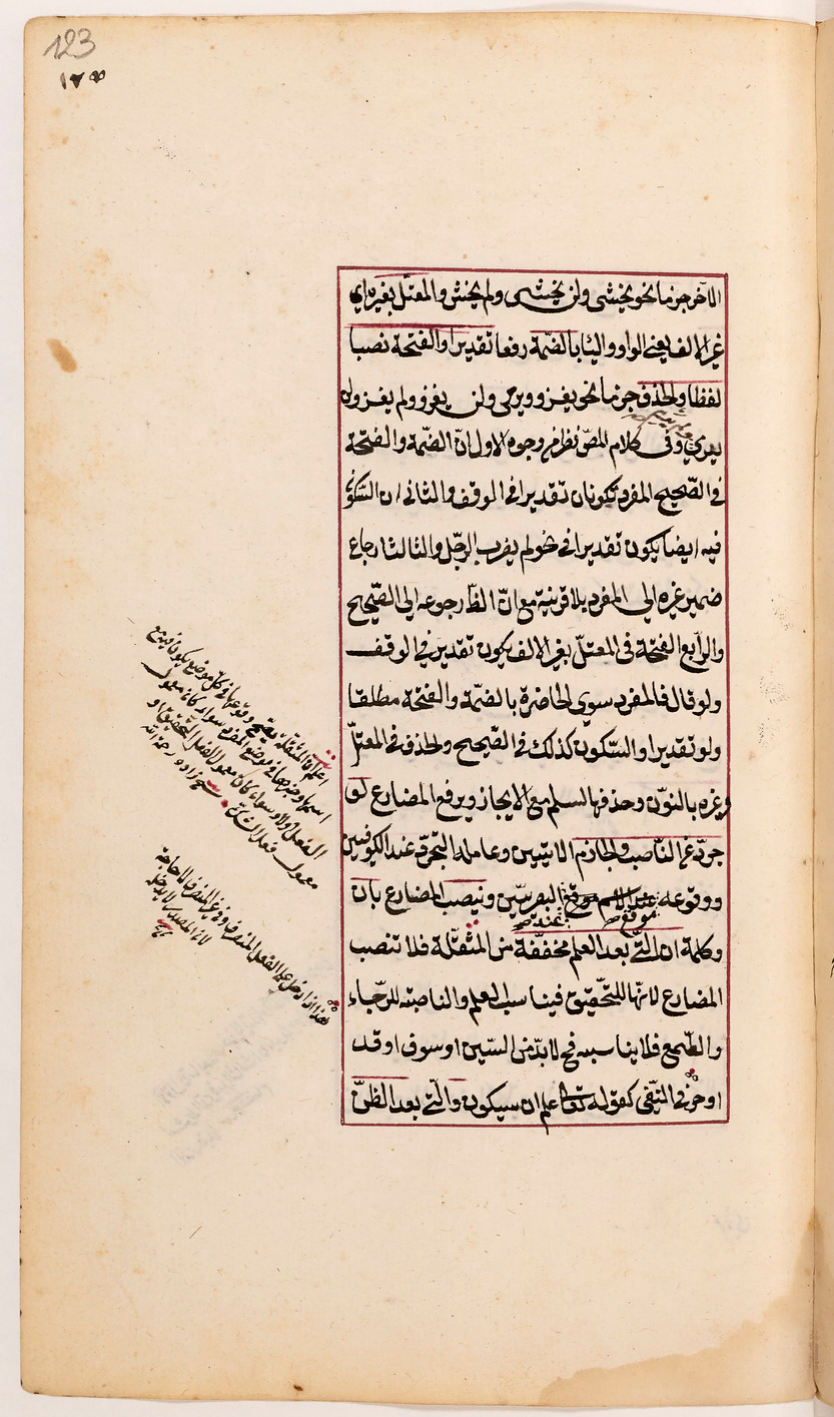 123
١٢٣
الآخر جزما نحو يخشى ولن يخشى ولم يخش والمعتل بغيره اي
غير الالف يعني الواو والياء بالضمّة رفعا تقديرا والفتحة نصبا
لفظا والحذف جزما نحو يغزو ويرمى ولن يغزو ولم يغز ولم
يرمى وفى كلام المصّ نظر من وجوه الاول انّ الضّمة والفتحة
في الصّحيح المفرد تكونان تقديرا في الوقف والثاني ان السّكون
فيه ايضا يكون تقديرا في نحو لم يضرب الرّجل والثالث ارجاع
ضمير غيره الى المفرد بلا قرينة مع انّ الظّ رجوعه الى الصّحيح
والرّابع الفتحة فى المعتلّ بغير الالف يكون تقديرا في الوقف
ولو قال فالمفرد سوى الحاضرة بالضمّة والفتحة مطلقا
ولو تقديرا والسّكون كذلك في الصّحيح والحذف في المعتلّ
وغيره بالنّون وحذفها لسلم مع الايجاز ويرفع المضارع لو
جرّد عن النّاصب والجازم الاتيين وعامله التجرّد عند الكوفيين
ووقوعه موقع الاسم عند البصريّين وينصب المضارع بان
وكلمة ان الّتي بعد العلم مخفّفة من المثقّلة فلا تنصب
المضارع لانّها للتّحقيق فيناسب العلم والناصبة للرّجاء
والطّمع فلا يناسبه فح لا بدّ من السّين او سوف او قد
او حرف النّفى كقوله تعا علم ان سيكون والّتي بعد الظّنّ
اعلم ان المثقلة يصح وقوعها في كل موضع يكون فيه مع
اسمها وخبرها في موضع المفرد سواء كان معمول
الفعل اولا وسواء كان معمولا لفعل التحقيق او
معمول فعل الشك شيخ زاده رحمه الله
هذا اذا دخل على الفعل المتصرف وفي غير المتصرف لا حاجة